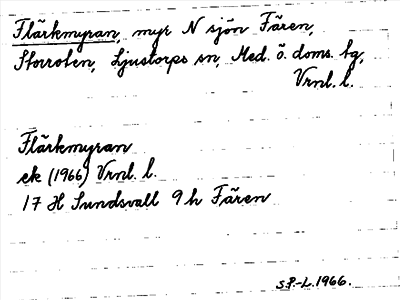 Flärkmyran, myr N sjön Fären,
Storroten, Ljustorps sn, Med. ö. doms. bg,
Vrnl. l.
Flärkmyran
ek (1966) Vrnl. l.
17 H Sundsvall 9 h Fären
S.P.-L. 1966.